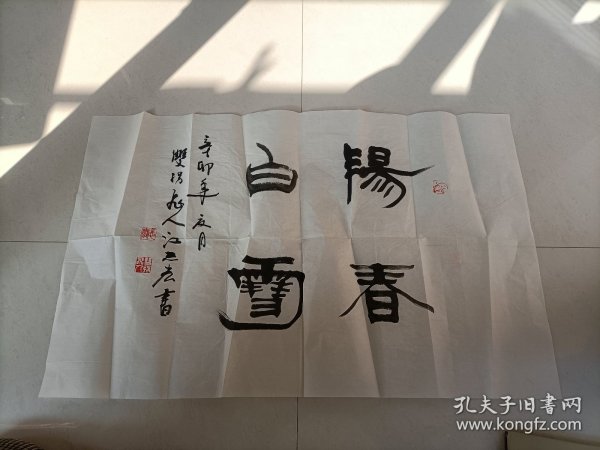 陽春
白雪
辛卯年夏月
雙拐
人江
書
孔夫子旧書网
www.kongfz.com